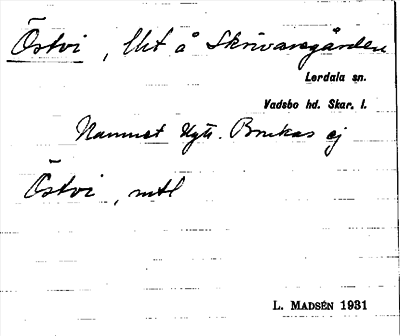 Östvi, lht å Skrivaregården
Lerdala sn.
Vadsbo hd. Skar. l.
Namnet nytt. Brukas ej
Östvi, mtl
L. MADSÉN 1931